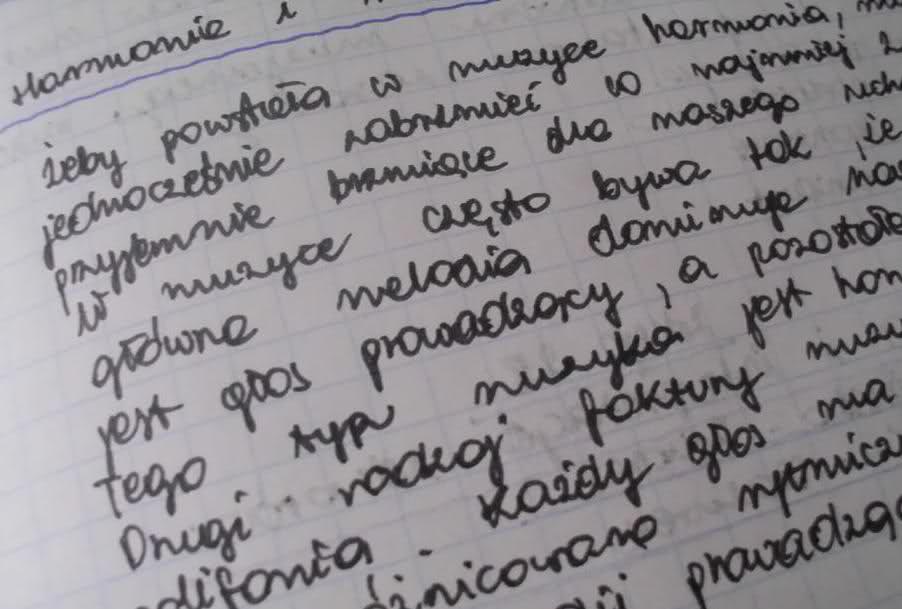 Harmonie i
żeby powstała w muzyce harmonia,
jednocześnie zabrzmieć w najmniej
przyjemnie brzmiące dla naszego
W muzyce często bywa tak, że
główna melodia dominuje
jest głos prowadzący, a pozostałe
tego typu muzyka jest
Drugi rodzaj faktury
Każdy głos ma
prowadzą